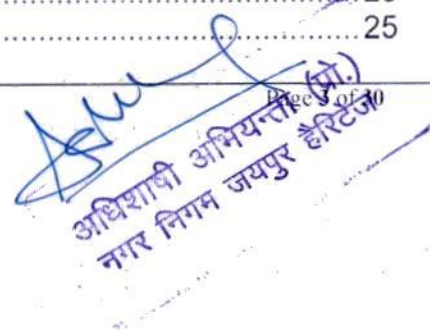 25
Page 3 of 30
अधिशाषी अभियन्ता (प्रो.)
नगर निगम जयपुर हैरिटेज